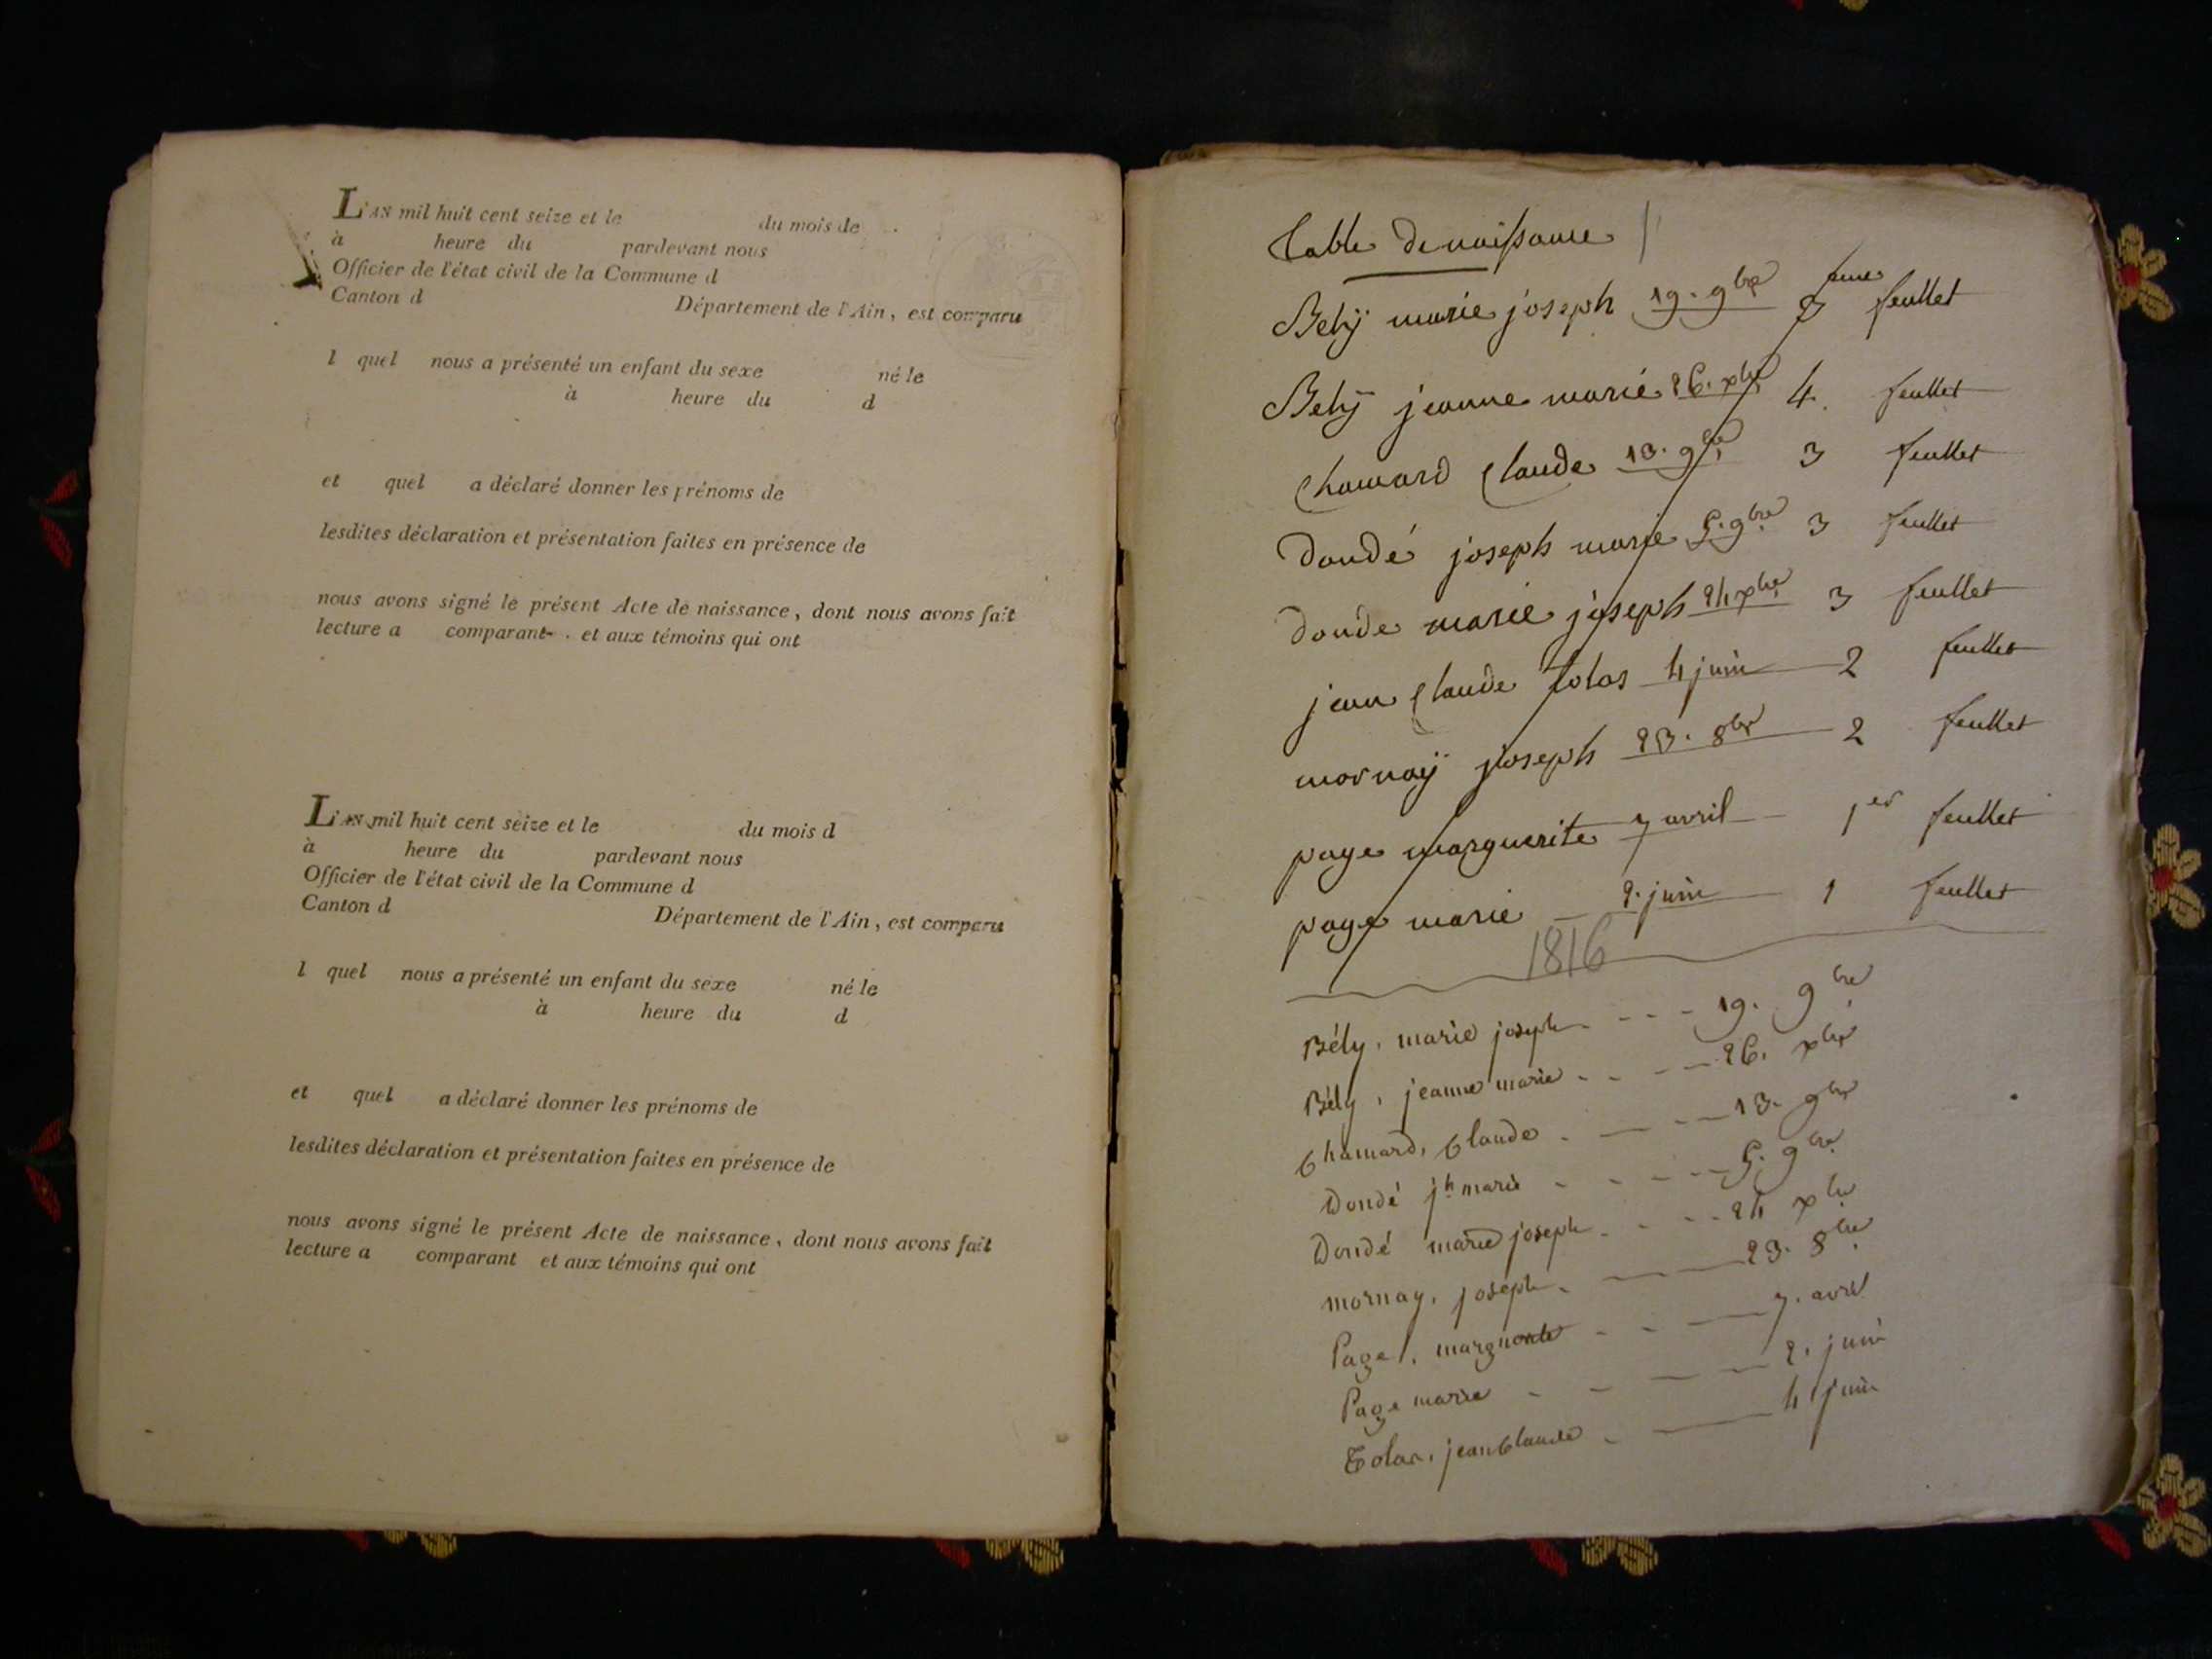 L'AN mil huit cent seize et le du mois de
à heure du pardevant nous
Officier de l'état civil de la Commune d
Canton d Département de l'Ain, est comparu
l quel nous a présenté un enfant du sexe né le
à heure du d
et quel a déclaré donner les prénoms de
lesdites déclaration et présentation faites en présence de
nous avons signé le présent Acte de naissance, dont nous avons fait
lecture a comparant et aux témoins qui ont
L'AN mil huit cent seize et le du mois d
à heure du pardevant nous
Officier de l'état civil de la Commune d
Canton d Département de l'Ain, est comparu
l quel nous a présenté un enfant du sexe né le
à heure du d
et quel a déclaré donner les prénoms de
lesdites déclaration et présentation faites en présence de
nous avons signé le présent Acte de naissance, dont nous avons fait
lecture a comparant et aux témoins qui ont
Table de naissance
Belÿ marie joseph 19. 9bre 3eme feullet
Belÿ jeanne marie 26. xbre 4. feullet
Chamard Claude 13. 9bre 3 feullet
Dondé joseph marie 5. 9bre 3 feullet
donde marie joseph 24 xbre 3 feullet
jean Claude tolas 4 juin 2 feullet
mornaÿ joseph 23. 8bre 2 feullet
page marguerite 7 avril 1er feullet
page marie 2. juin 1 feullet
1816
Bély, marie joseph 19. 9bre
Bély, jeanne marie 26. xbre
Chamard, Claude 13. 9bre
Dondé jh marie 5. 9bre
Dondé marie joseph 24 xbre
mornay, joseph 23. 8bre
Page, marguerite 7. avril
Page marie 2. juin
Tolas, jean Claude 4 juin